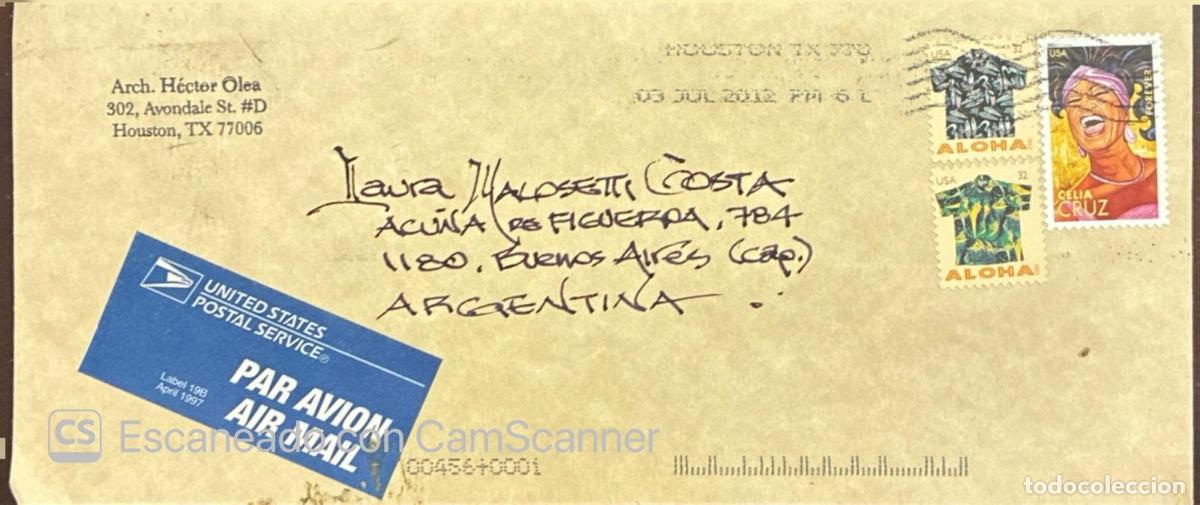 Arch. Héctor Olea
302, Avondale St. #D
Houston, TX 77006
HOUSTON TX 770
03 JUL 2012 PM 6 L
USA 32
ALOHA
USA 32
ALOHA
USA
FOREVER
CELIA
CRUZ
Laura Malosetti Costa
Acuña de Figueroa, 784
1180. Buenos Aires (cap.)
ARGENTINA
UNITED STATES
POSTAL SERVICE®
PAR AVION
AIR MAIL
Label 19B
April 1997
CS Escaneado con CamScanner
00456+0001
todocoleccion